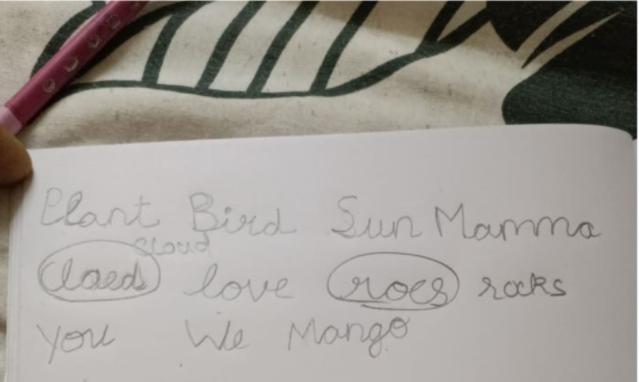 Plant Bird Sun Mamma
cloud
claed love roes rocks
you We Mango